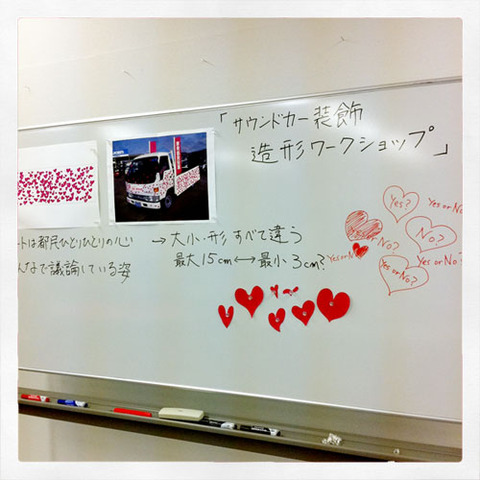 「サウンドカー装飾
造形ワークショップ」
ートは都民ひとりひとりの心
んなで議論している姿
→ 大小・形 すべて違う
最大15cm ↔ 最小3cm?
Yes?
Yes or No?
Yes or No?
No?
Yes or No?
Yes or No?
Yes or No?